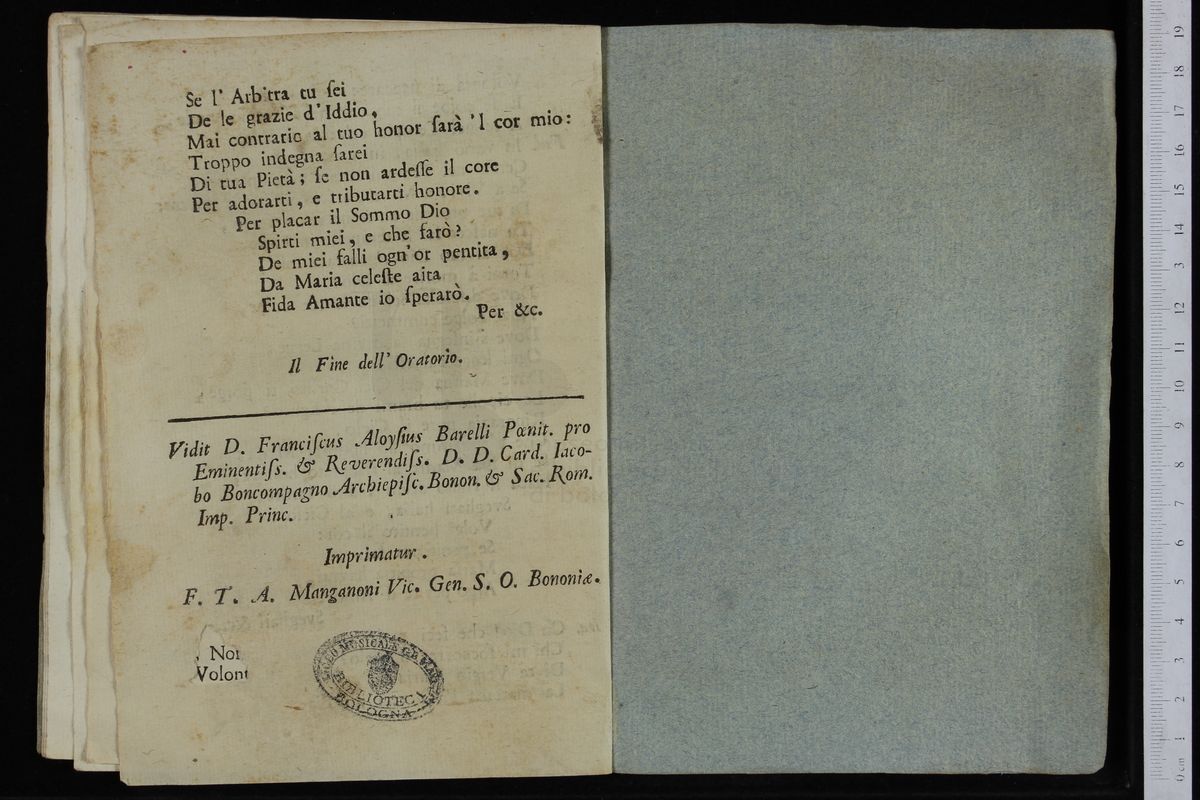 Se l' Arbitra tu ſei
De le grazie d' Iddio,
Mai contrario al tuo honor ſarà 'l cor mio:
Troppo indegna ſarei
Di tua Pietà; ſe non ardeſſe il core
Per adorarti, e tributarti honore.
Per placar il Sommo Dio
Spirti miei, e che farò?
De miei falli ogn'or pentita,
Da Maria celeſte aita
Fida Amante io ſperarò.
Per &c.
Il Fine dell' Oratorio.
Vidit D. Franciſcus Aloyſius Barelli Pœnit. pro
Eminentiſs. & Reverendiſs. D. D. Card. Iaco-
bo Boncompagno Archiepiſc. Bonon. & Sac. Rom.
Imp. Princ.
Imprimatur.
F. T. A. Manganoni Vic. Gen. S. O. Bononiæ.
Not
Volont
LICEO MUSICALE
BIBLIOTECA
BOLOGNA
0 cm 1 2 3 4 5 6 7 8 9 10 11 12 13 14 15 16 17 18 19